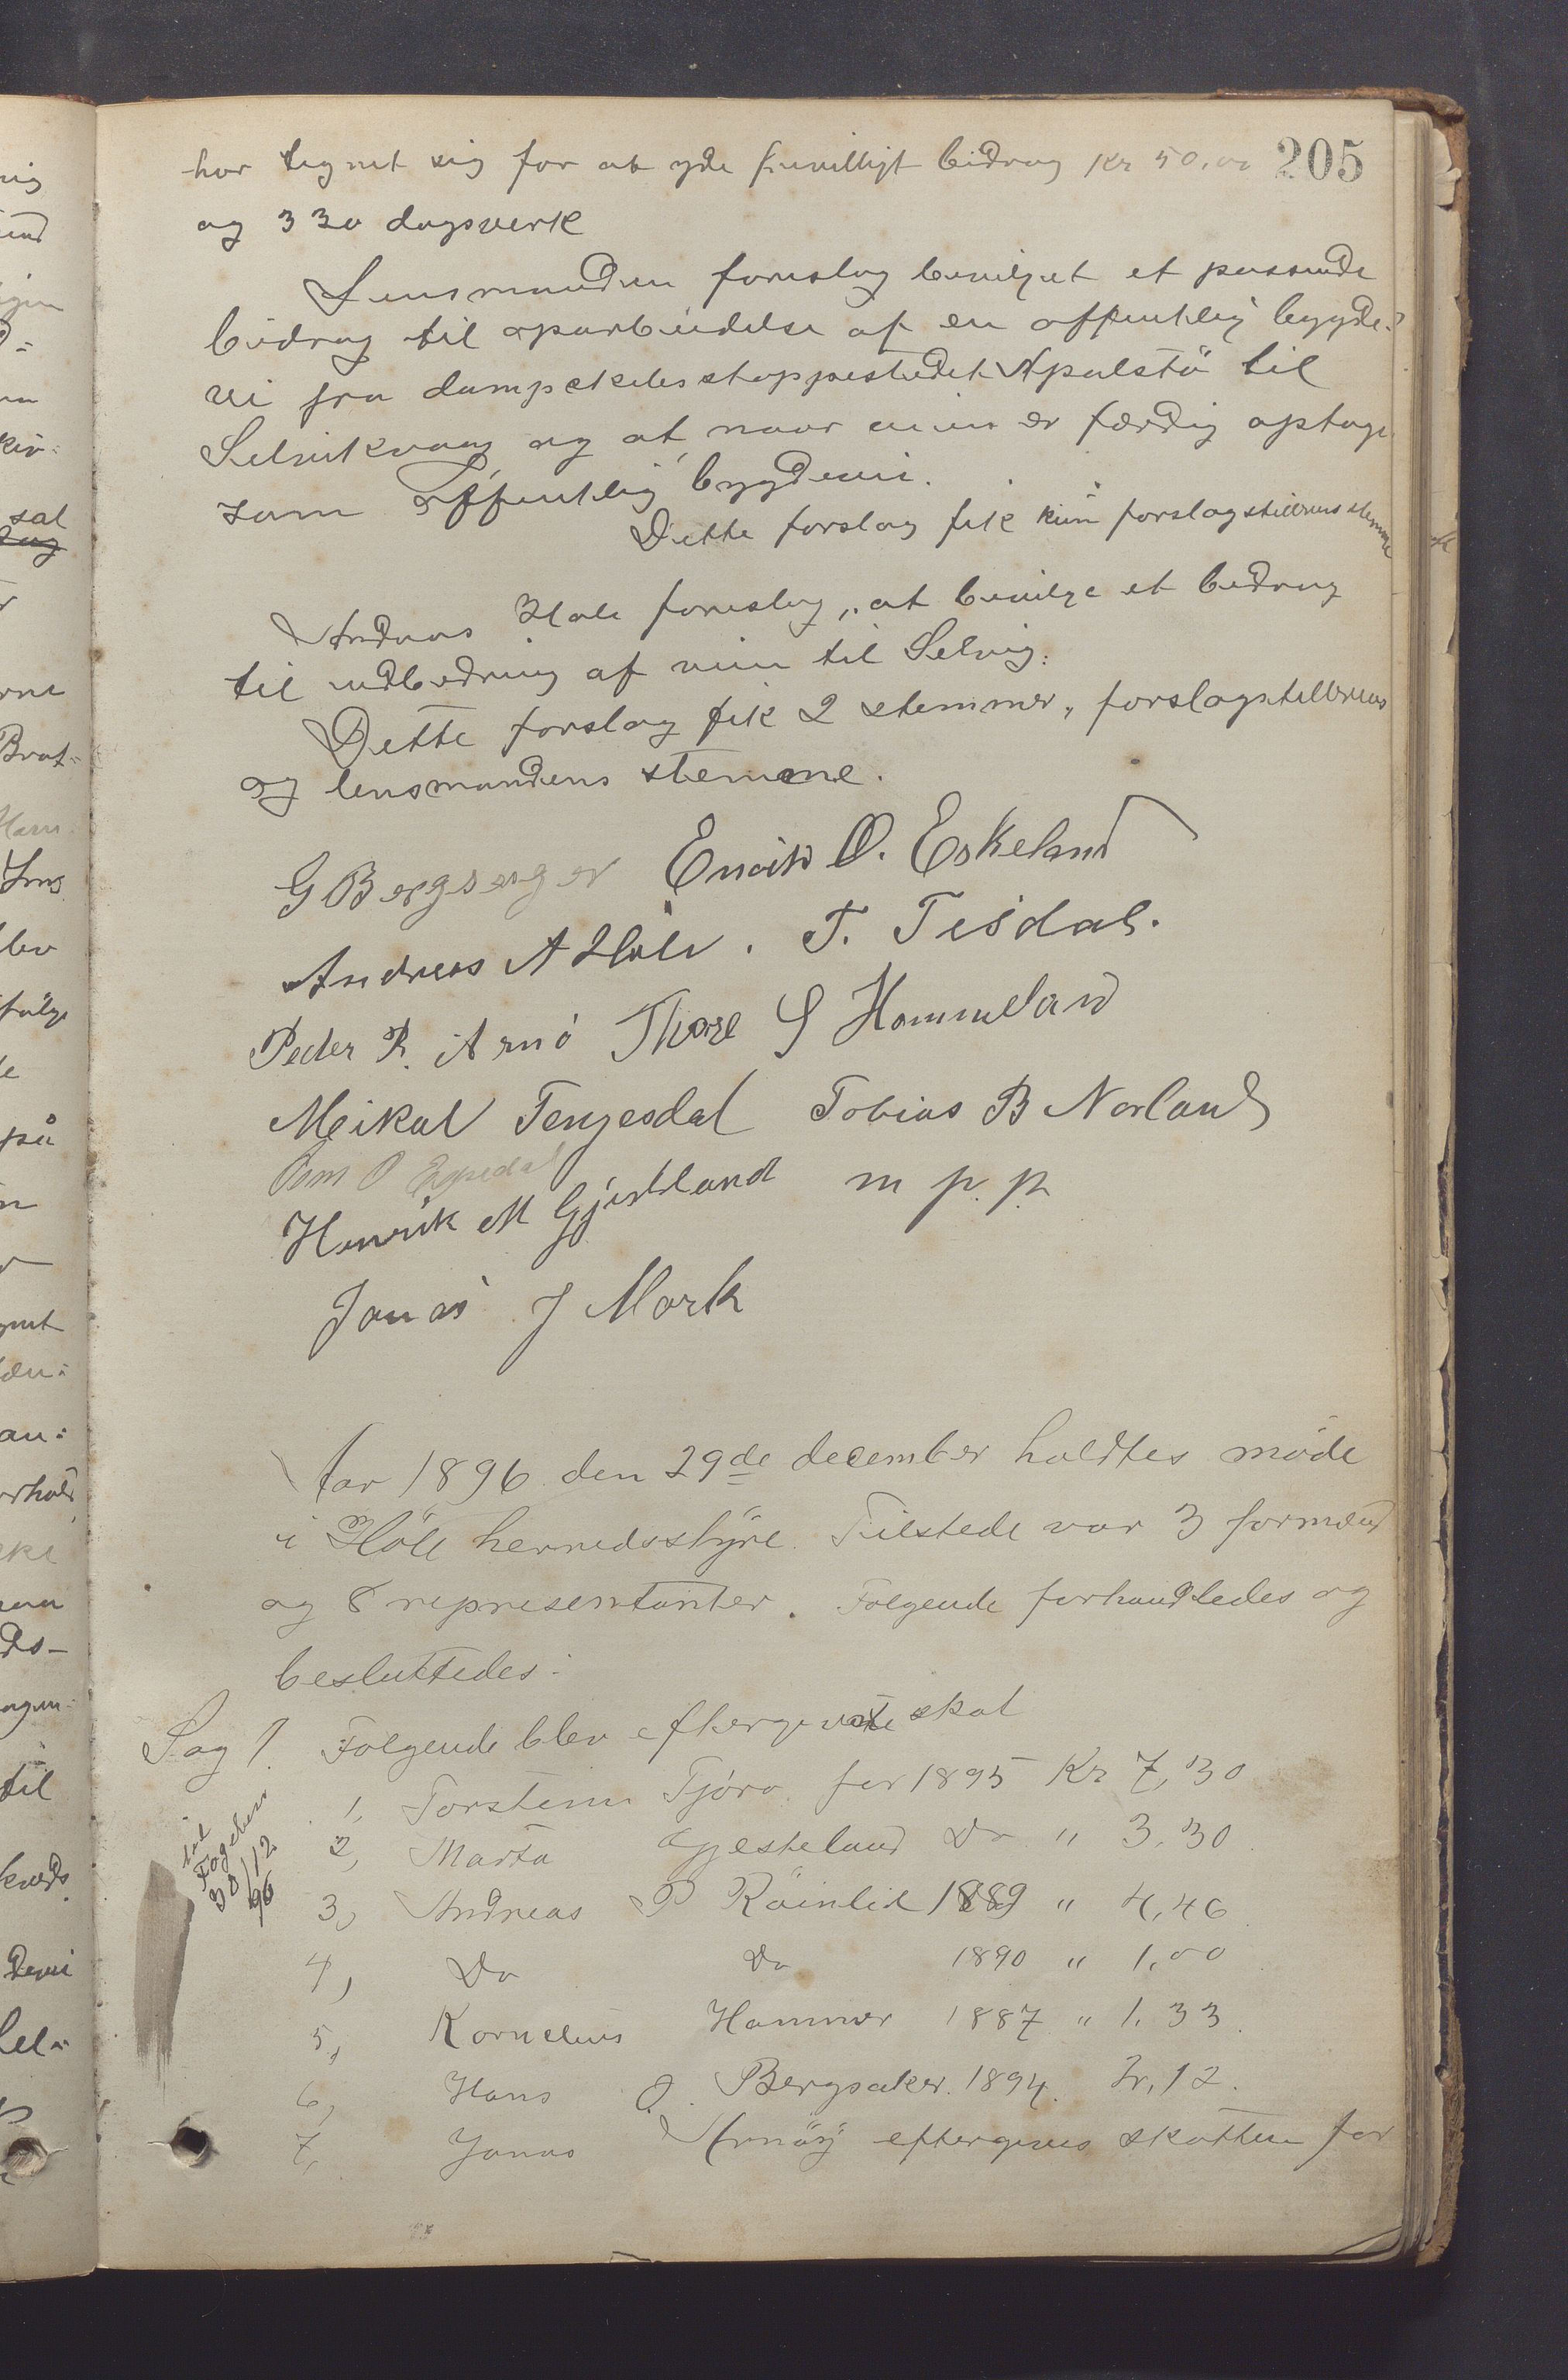 205
har tegnet sig for at yde frivilligt bidrag Kr 50,00
og 330 dagsverk
Lensmanden foreslog bevilget et passende
bidrag til oparbeidelse af en offentlig bygde-
vei fra dampskibsstoppestedet Apalstø til
Selvikvaag og at, naar veien er færdig optage
som offentlig bygdevei.
Dette forslag fik kun forslagstillerens stemme
Andreas Hole foreslog „at bevilge et bidrag
til udbedring af veien til Selvig:
Dette forslag fik 2 stemmer, forslagstillerens
og lensmandens stemme.
G Bergsager Enok O. Eskeland
Andreas A Hole. T. Tisdal.
Peder P. Arnö Thore S Hommeland
Meikal Tengesdal Tobias B Norland
O Espedal
Henrik M Gjestland m p. p.
Jonas J Mork
Aar 1896 den 29de december holdtes møde
i Höle herredsstyre. Tilstede var 3 formænd
og 8 representanter. Følgende forhandledes og
besluttedes:
Sag 1. Følgende blev eftergivet skat
1, Torstein Tjøra for 1895 Kr 7,30
2, Marta Gjesteland Do " 3,30
3, Andreas P Röinlid 1889 " 4,46
4, Do Do 1890 " 1,00
5, Kornelius Hammer 1887 " 1,33
6, Hans O. Bergsaker. 1894. Kr, 12.
7, Jonas Arnöy eftergives skatten for
til
Fogden
30/12
96